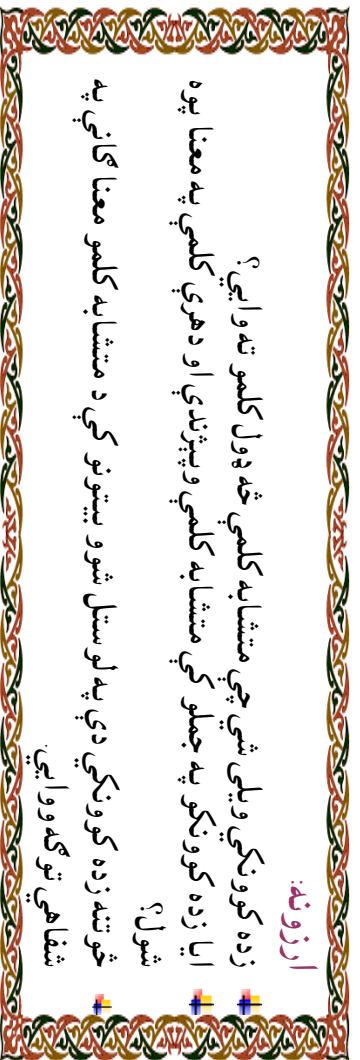 ارزونه:
زده کوونکي ویلی شي چې متشابه کلمې څه ډول کلمو ته وایي؟
ایا زده کوونکو په جملو کې متشابه کلمې وپیژندې او دهرې کلمې په معنا پوه
شول؟
څوتنه زده کوونکي دې په لوستل شوو بیتونو کې د متشابه کلمو معنا گانې په
شفاهي توگه ووایي.